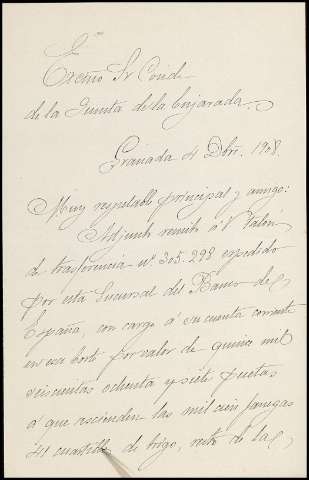 Excmo Sr Conde
de la Quinta de la Enjarada.
Granada 4 Dbre. 1908.
Muy respetable principal y amigo:
Adjunto remito á V talón
de trasferencia nº 305.298 expedido
por esta Sucursal del Banco de
España, con cargo á su cuenta corriente
en esa Corte por valor de quince mil
seiscientas ochenta y siete pesetas
á que ascienden las mil cien fanegas
41 cuartillos de trigo, resto de la